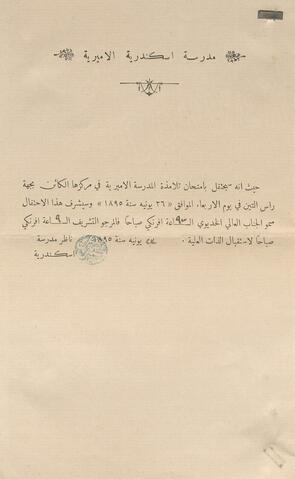 مدرسة اسكندرية الاميرية
حيث انه سيحتفل بامتحان تلامذة المدرسة الاميرية في مركزها الكائن بجهة
راس التين في يوم الاربعاء الموافق « ٢٦ يونيه سنة ١٨٩٥ » وسيشرف هذا الاحتفال
سمو الجناب العالي الخديوي الساعة افرنكي صباحًا فالمرجو التشريف الساعة ٩ افرنكي
صباحًا لاستقبال الذات العلية . يونيه سنة ١٨٩٥ ناظر مدرسة
اسكندرية